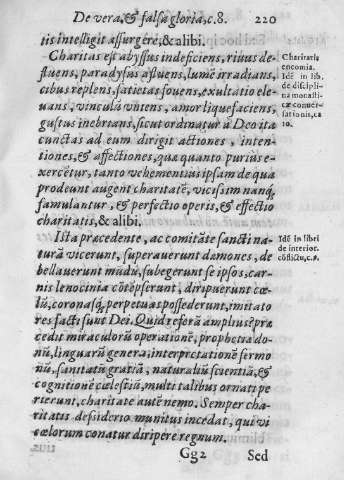 De vera, & falsa gloria, c. 8. 220
tis intelligit assurgere; & alibi.
Charitas est abyssus indeficiens, riuus de-
fluens, paradysus afluens, lumē irradians,
cibus replens, satietas fouens, exultatio ele-
uans, vinculū vniens, amor liquefaciens,
gustus inebrians, sicut ordinatur à Deo ita
cunctas ad eum dirigit actiones, inten-
tiones, & affectiones, quæ quanto purius ex-
ercētur, tanto vehementius ipsam de qua
prodeunt augent charitatē, vicissim nanq́,
famulantur, & perfectio operis, & effectio
charitatis, & alibi.
Ista præcedente, ac comitāte sancti na-
turā vicerunt, superauerunt dæmones, de
bellauerunt mūdū, subegerunt se ipsos, car-
nis lenocinia cōtēpserunt, diripuerunt cœ-
lū, coronasq́, perpetuas possederunt, imitato
res facti sunt Dei. Quid referā amplius? præ
cedit miraculorū operationē, prophetiæ do-
nū, linguarū genera, interpretationē sermo
nū, sanitatū gratiā, naturaliū scientiā, &
cognitionē cælestiū, multi talibus ornati pe
rierunt, charitate autē nemo. Semper cha-
ritatis desiderio munitus incedat, qui vi
cœlorum conatur diripere regnum.
Gg2 Sed
Charitatis
encomia.
Idē in lib.
de discipli-
na monasti-
cæ conuer-
sationis, ca
10.
Idē in libri
de interior.